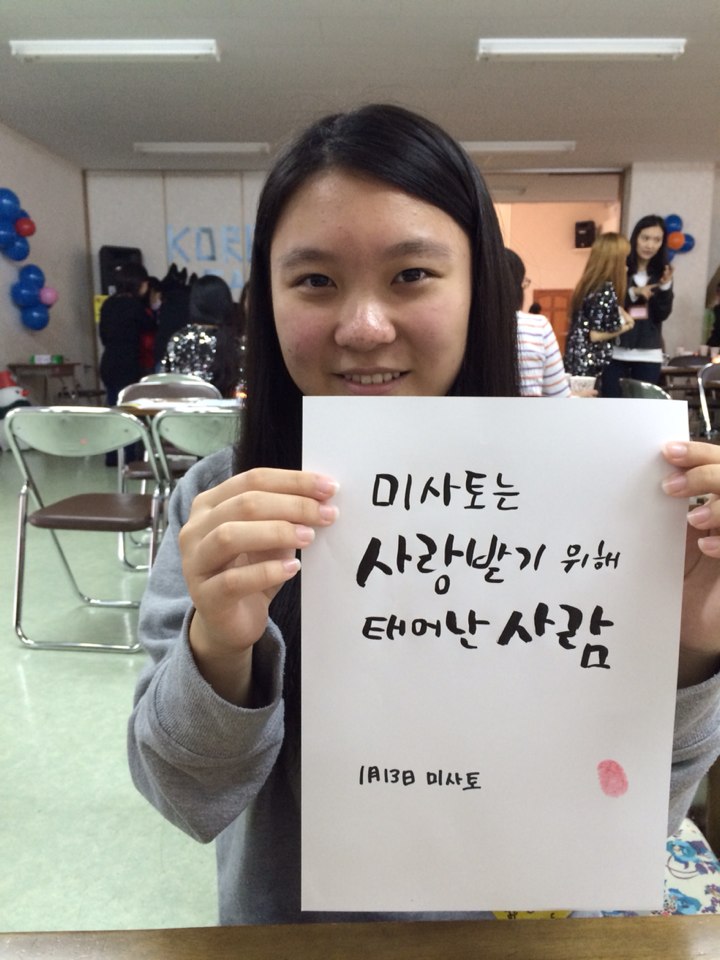 KORE
미사토는
사랑받기 위해
태어난 사람
1月13日 미사토